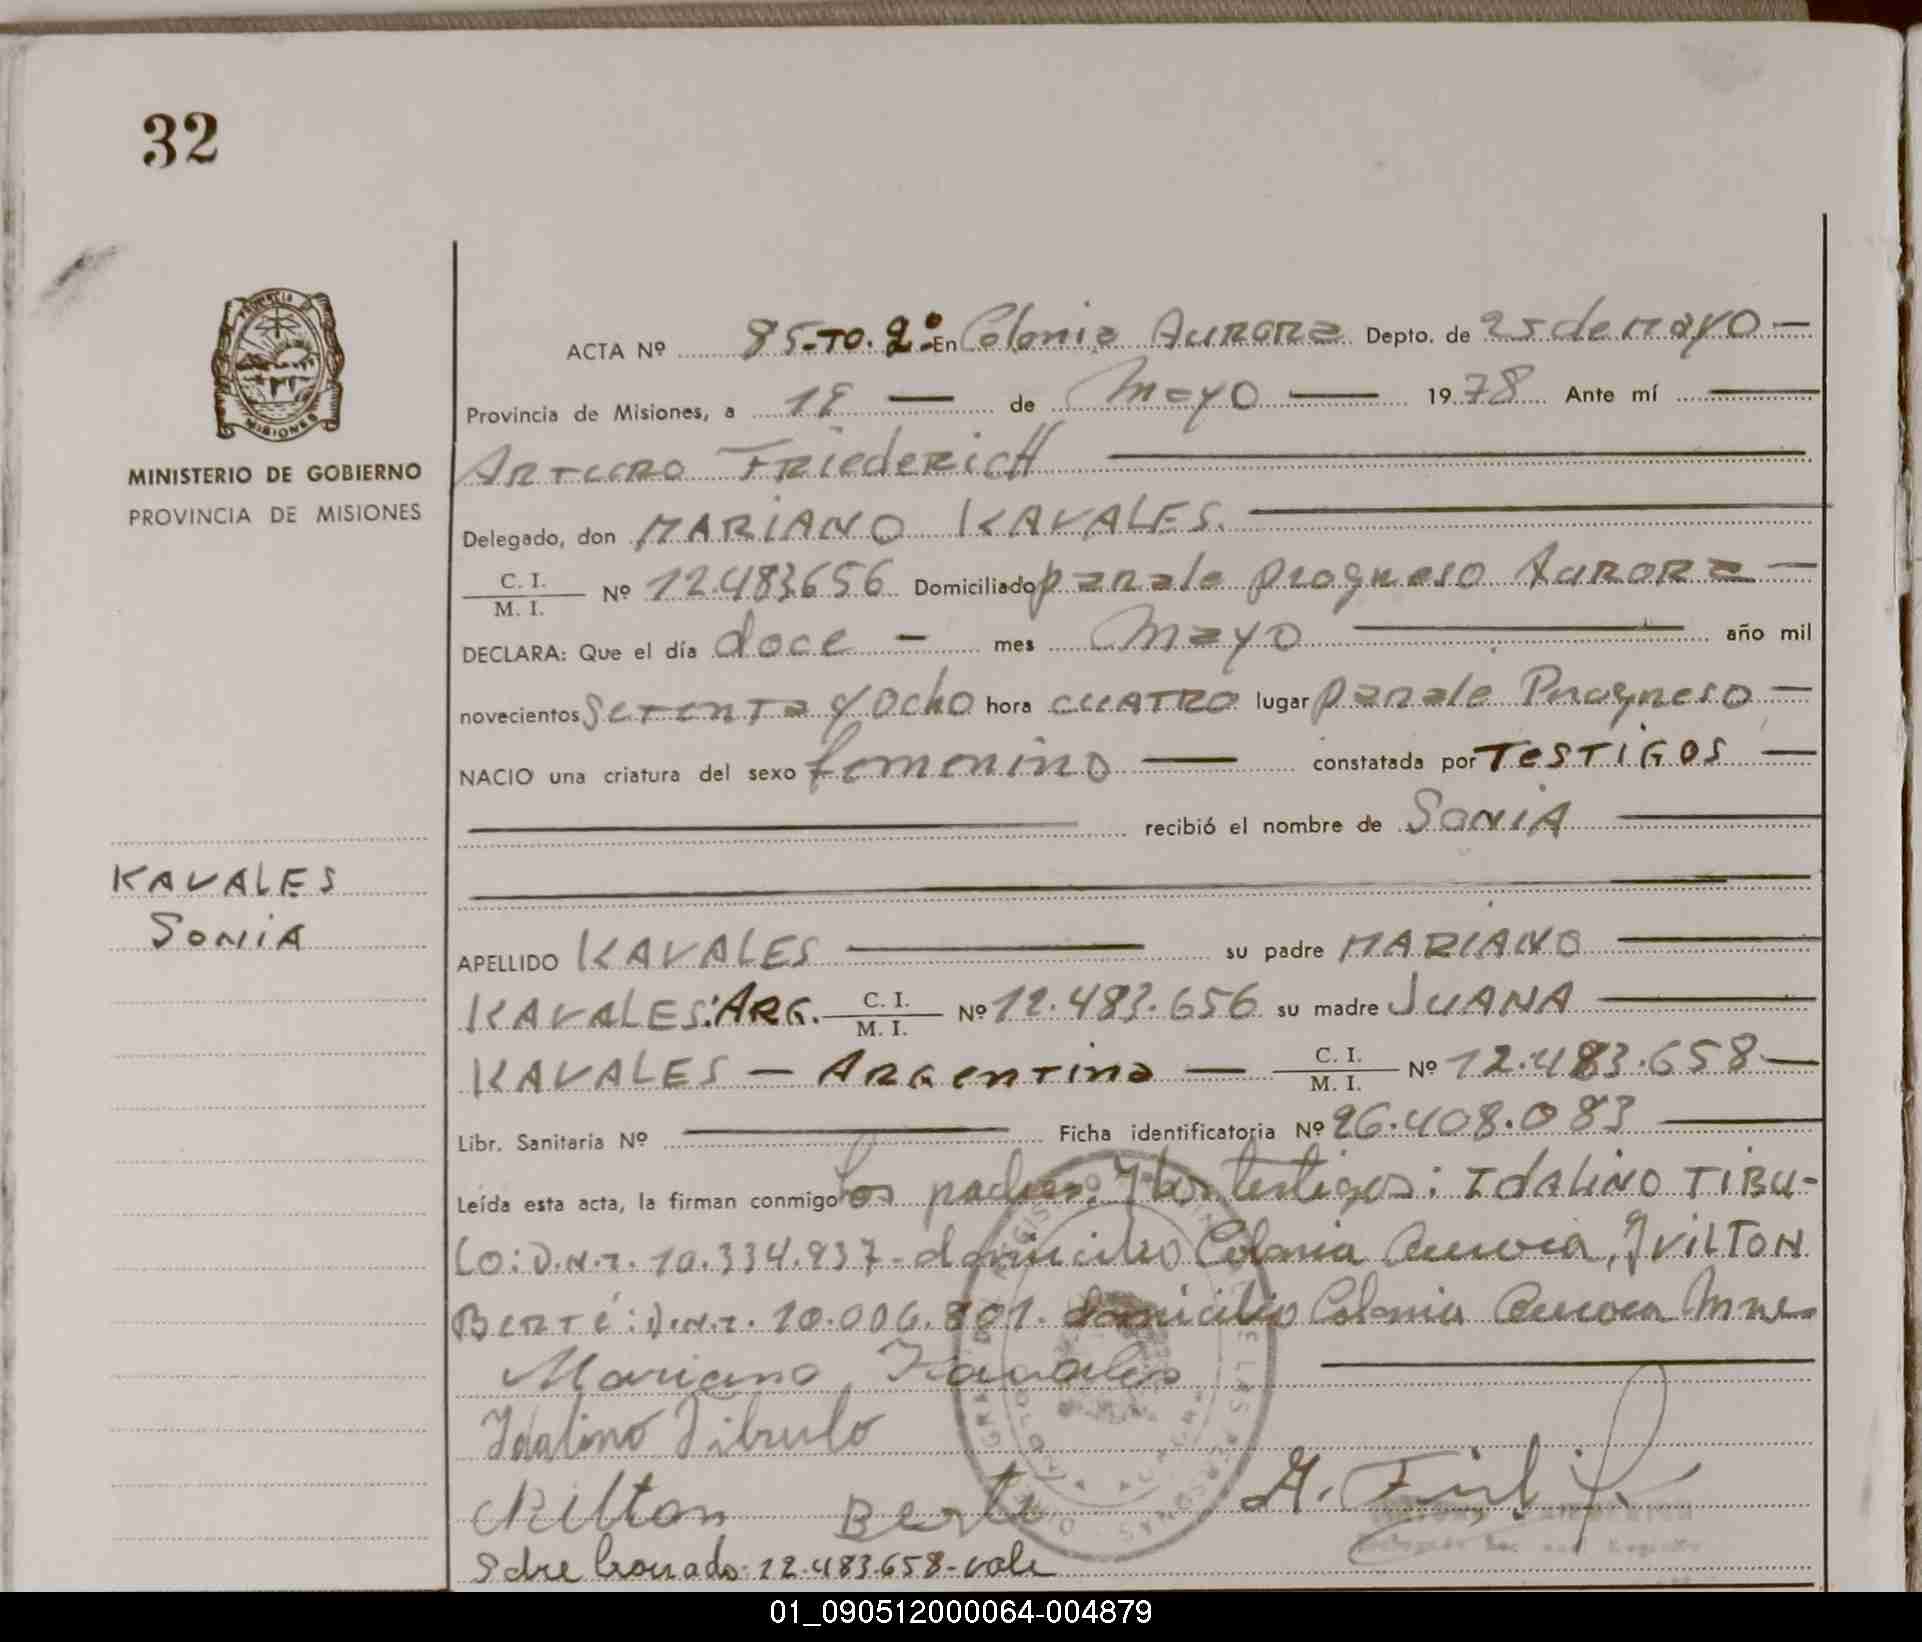 32
PROVINCIA DE
MISIONES
MINISTERIO DE GOBIERNO
PROVINCIA DE MISIONES
KAVALES
SONIA
ACTA Nº 85-TO.2º En Colonia Aurora Depto. de 25 de Mayo
Provincia de Misiones, a 18 de Mayo 1978 Ante mí
Arturo Friederich
Delegado, don MARIANO KAVALES.
C. I.
M. I. Nº 12.483.656 Domiciliado Aurora
DECLARA: Que el día doce mes Mayo año mil
novecientos Setenta y ocho hora cuatro lugar
NACIO una criatura del sexo femenino constatada por TESTIGOS
recibió el nombre de SONIA
APELLIDO KAVALES su padre MARIANO
KAVALES: ARG. C. I.
M. I. Nº 12.483.656 su madre JUANA
KAVALES - Argentina - C. I.
M. I. Nº 12.483.658
Libr. Sanitaria Nº Ficha identificatoria Nº 26.408.083
Leída esta acta, la firman conmigo los padres y los testigos: IDALINO TIBU-
LO: D.N.I. 10.334.937 - domicilio Colonia Aurora, y VILTON
BERTÉ: D.N.I. 10.006.801. domicilio Colonia Aurora Mnes
Mariano Kavales
Idalino Tibulo
Berté
Sobre borrado: 12.483.658 - vale
01_090512000064-004879